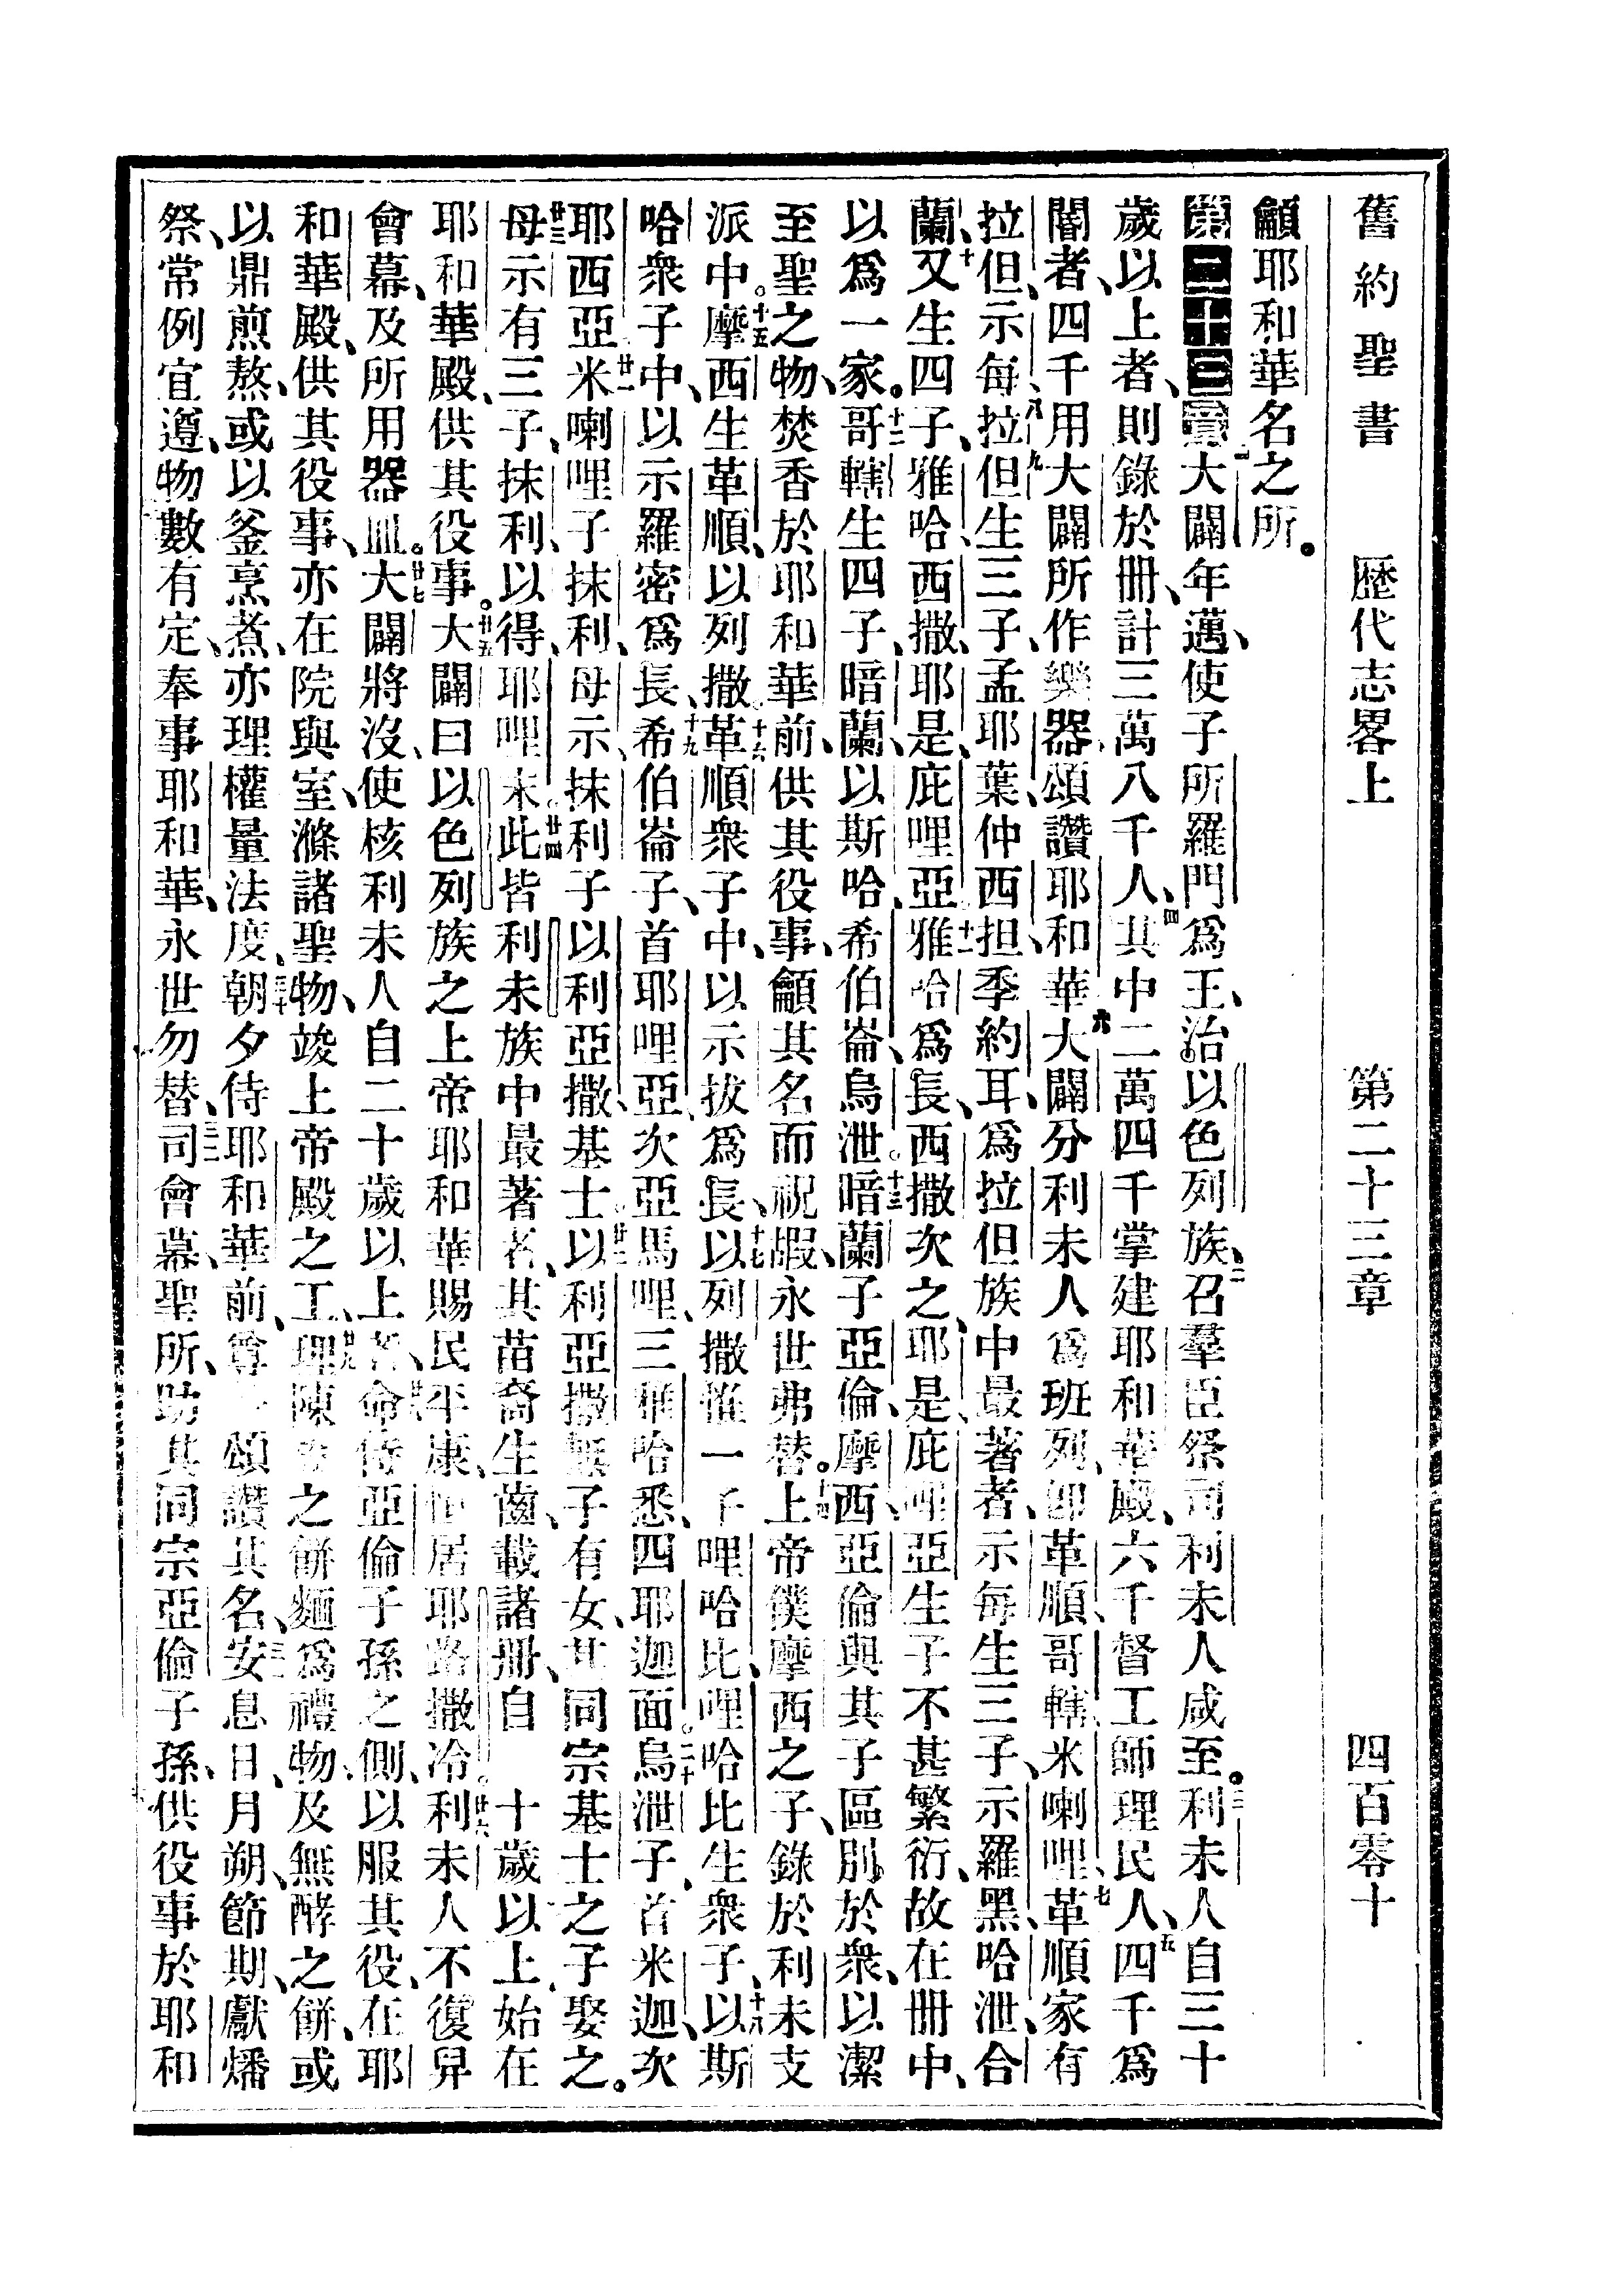 舊約聖書 歷代志畧上 第二十三章 四百零十
龥耶和華名之所。
第二十三章一大闢年邁、使子所羅門爲王、治以色列族、二召羣臣祭司利未人咸至。三利未人自三十
歲以上者、則錄於冊、計三萬八千人、四其中二萬四千掌建耶和華殿、六千督工師理民人、五四千爲
閽者、四千用大闢所作樂器、頌讚耶和華、六大闢分利未人爲班列、卽革順、哥轄、米喇哩、七革順家有
拉但、示每、八拉九但生三子、孟耶葉、仲西担、季約耳、爲拉但族中最著者、示每生三子、示羅黑、哈泄、合
蘭、十又生四子、雅哈、西撒、耶是、庇哩亞、十一雅哈爲長、西撒次之、耶是、庇哩亞生子不甚繁衍、故在冊中、
以爲一家。十二哥轄生四子、暗蘭、以斯哈、希伯崙、烏泄。十三暗蘭子亞倫、摩西、亞倫與其子區別於衆、以潔
至聖之物、焚香於耶和華前、供其役事、龥其名而祝嘏、永世弗替。十四上帝僕摩西之子、錄於利未支
派中。十五摩西生革順、以列撒。十六革順衆子中、以示拔爲長、十七以列撒惟一子哩哈比、哩哈比生衆子、十八以斯
哈衆子中、以示羅密爲長、十九希伯崙子、首耶哩亞、次亞馬哩、三雅哈悉、四耶迦面。二十烏泄子、首米迦、次
耶西亞、廿一米喇哩子抹利、母示、抹利子以利亞撒、基士。廿二以利亞撒無子有女、其同宗基士之子娶之。
廿三母示有三子、抹利、以得、耶哩末。廿四此皆利未族中最著者、其苗裔生齒、載諸冊、自 十歲以上、始在
耶和華殿、供其役事。廿五大闢曰、以色列族之上帝耶和華、賜民平康、恒居耶路撒冷。廿六利未人不復舁
會幕、及所用器皿。廿七大闢將沒、使核利未人自二十歲以上者、命侍亞倫子孫之側、以服其役、在耶
和華殿、供其役事、亦在院與室、滌諸聖物、竣上帝殿之工、廿九理陳 之餅、麵爲禮物、及無酵之餅、或
以鼎煎熬、或以釜烹煮、亦理權量法度、三十朝夕侍耶和華前、尊 頌讚其名、三一安息日、月朔、節期、獻燔
祭、常例宜遵、物數有定、奉事耶和華、永世勿替、三二司會幕聖所、助其同宗亞倫子孫、供役事於耶和